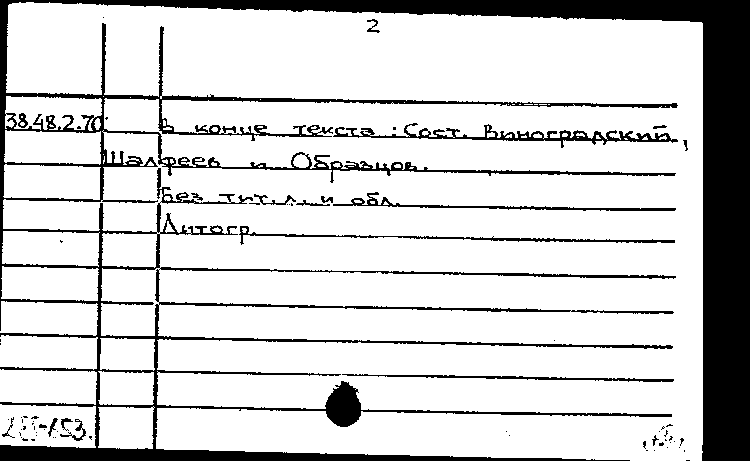 2
38.48.2.70 В конце текста : Сост. Виноградский,
Шалфеев и Образцов.
Без тит. л. и обл.
Литогр.